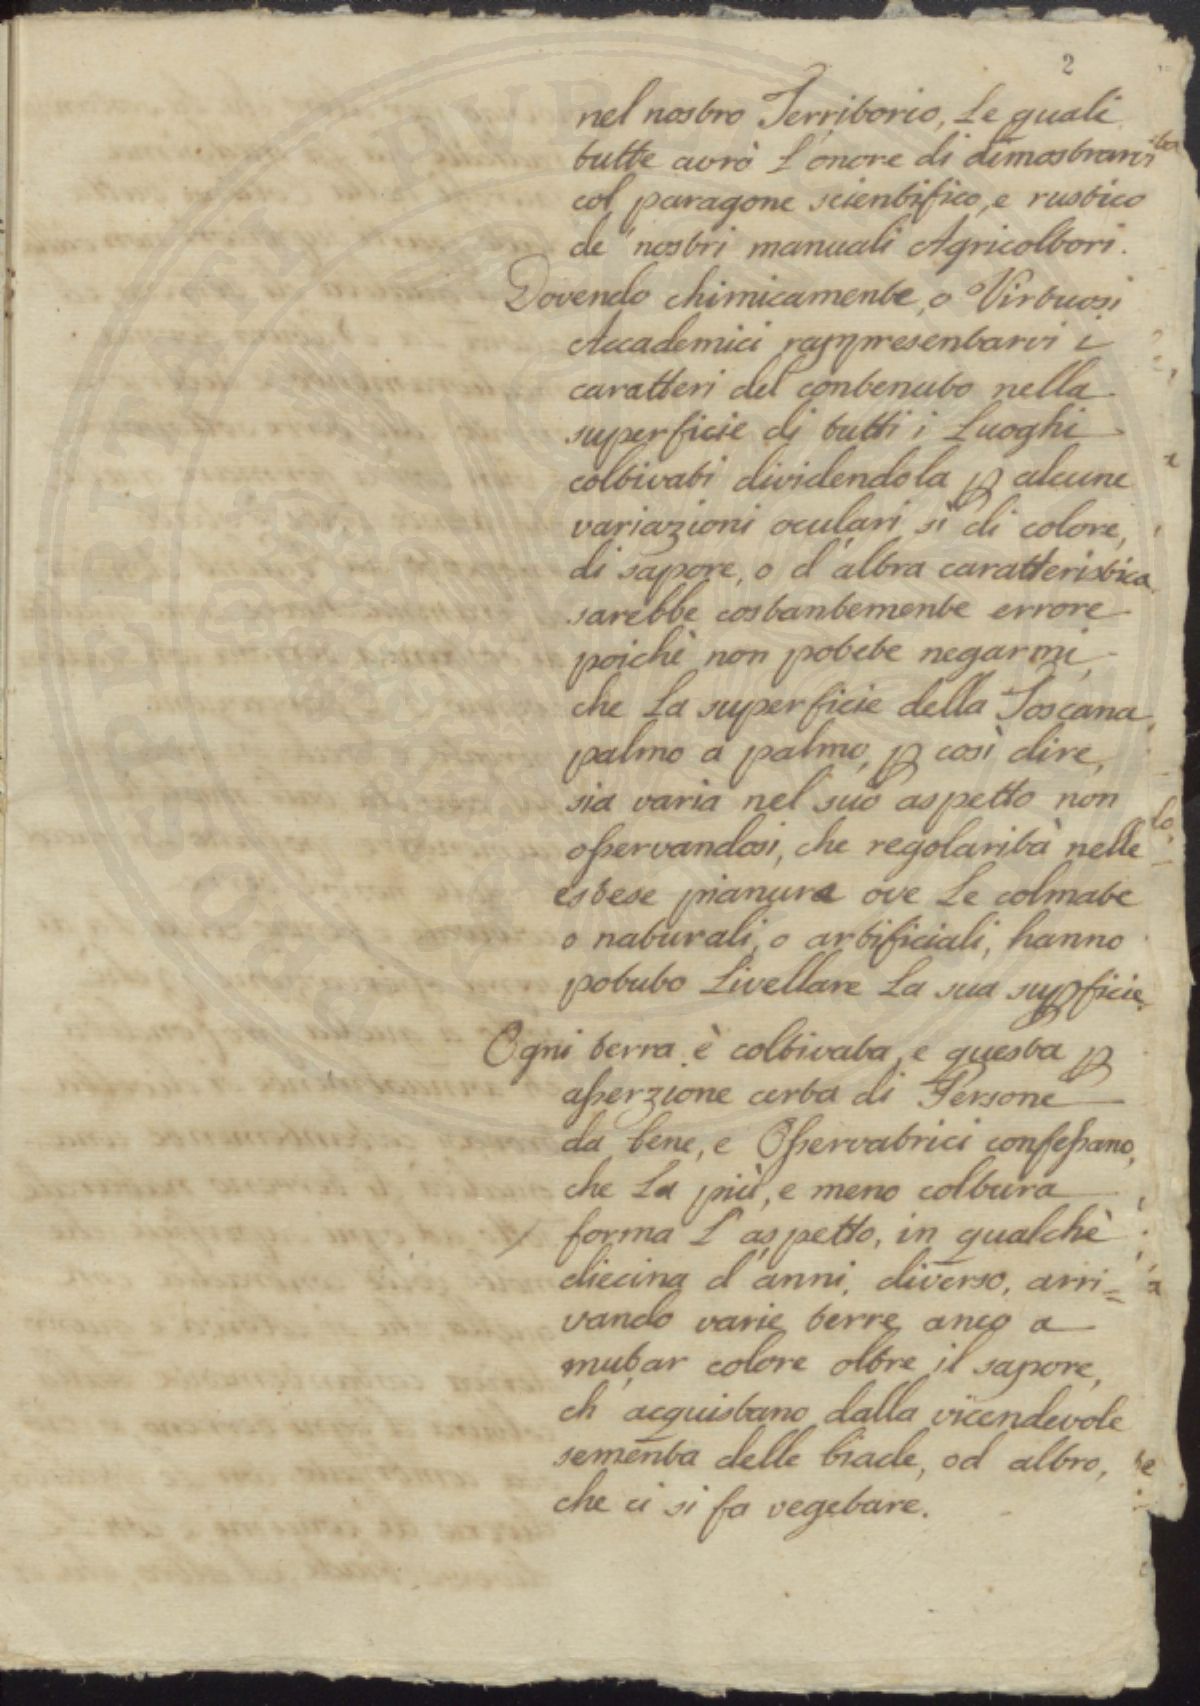 2
nel nostro Territorio, Le quali
tutte avrò L'onore di dimostrarvi
col paragone scientifico, e rustico
de' nostri manuali Agricoltori.
Dovendo chimicamente, o Virtuosi
Accademici rappresentarvi i
caratteri del contenuto nella
superficie di tutti i Luoghi
coltivati dividendola ꝑ alcune
variazioni oculari, sì di colore,
di sapore, o d'altra caratteristica
sarebbe costantemente errore
poichè non potete negarmi,
che La superficie della Toscana
palmo a palmo, ꝑ così dire,
sia varia nel suo aspetto non
oſservandosi, che regolarità nelle
estese pianure ove Le colmate
o naturali, o artificiali, hanno
potuto Livellare La sua suꝑficie.
Ogni terra è coltivata, e questa ꝑ
aſserzione certa di Persone
da bene, e Oſservatrici confeſsano,
che La più, e meno coltura
forma L'aspetto, in qualchè
diecina d'anni, diverso, arri=
vando varie terre anco a
mutar colore oltre il sapore,
ch' acquistano dalla vicendevole
sementa delle biade, od altro,
che ci si fa vegetare.